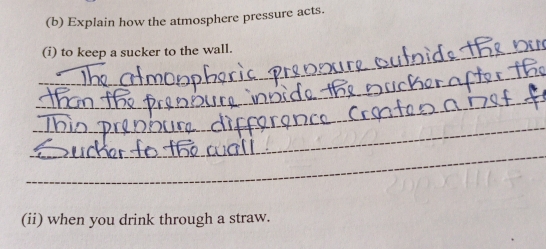 (b) Explain how the atmosphere pressure acts.
(i) to keep a sucker to the wall.
The atmospheric pressure outside the
than the pressure inside the sucker after the
This pressure difference creates a net
Sucker to the wall.
(ii) when you drink through a straw.